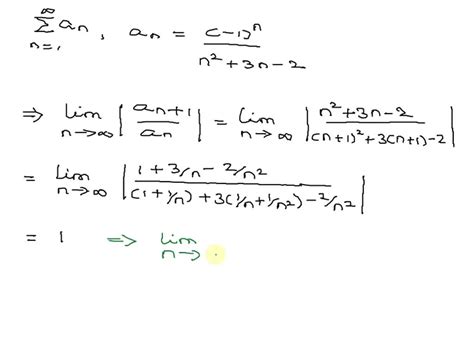 ∞
∑ aₙ, aₙ = (-1)ⁿ / (n² + 3n - 2)
n=1
⇒ lim n→∞ | aₙ₊₁ / aₙ | = lim n→∞ | (n² + 3n - 2) / ((n+1)² + 3(n+1) - 2) |
= lim n→∞ | (1 + 3/n - 2/n²) / ((1 + 1/n) + 3(1/n + 1/n²) - 2/n²) |
= 1 ⇒ lim n→